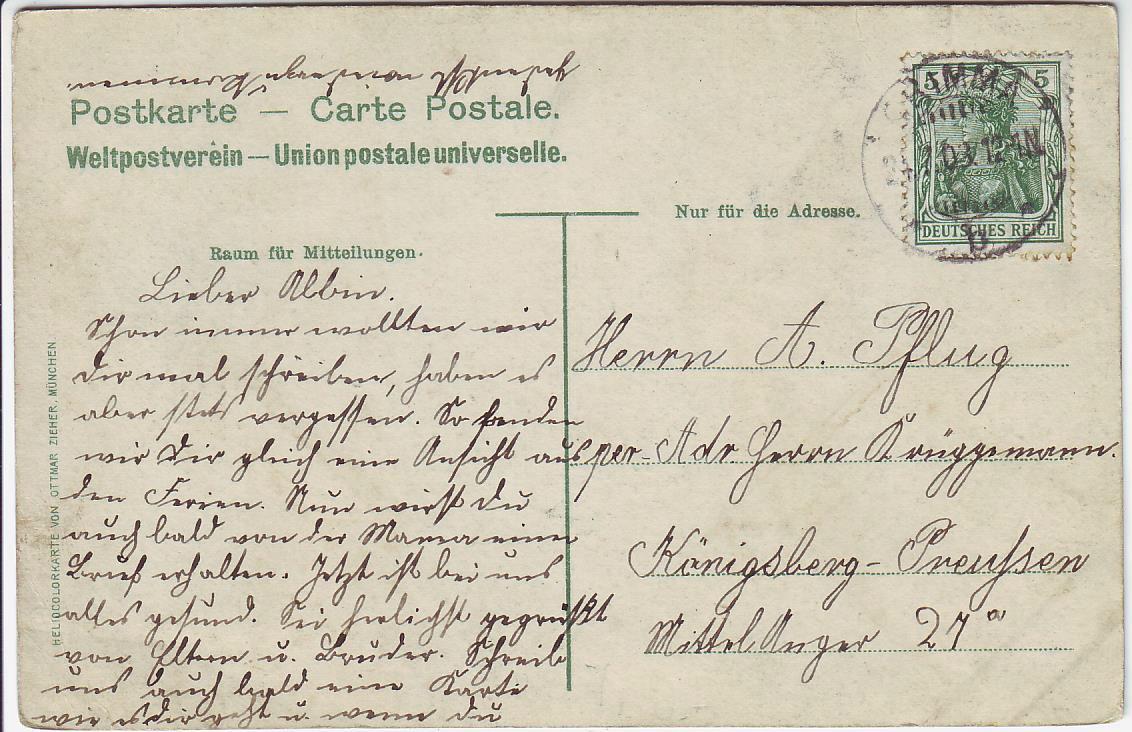 Postkarte — Carte Postale.
Weltpostverein — Union postale universelle.
Nur für die Adresse.
Raum für Mitteilungen.
HELIOCOLORKARTE VON OTTMAR ZIEHER, MÜNCHEN
5 5
DEUTSCHES REICH
GRIMMA
03. 12-1N.
Lieber Albin.
Schon immer wollten wir
Dir mal schreiben, haben es
aber stets vergessen. So senden
wir Dir gleich eine Ansicht aus
den Ferien. Nun wirst Du
auch bald von der Mama einen
Brief erhalten. Jetzt ist bei uns
alles gesund. Sei herlichst gegrüßt
von Eltern u. Bruder. Schreib
uns auch bald eine Karte
wie es Dir geht u. wenn Du
Herrn A. Pflug
per Adr Herrn Krüggemann.
Königsberg-Preussen
Mittel Anger 27a